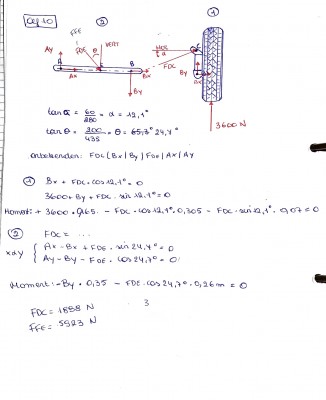 Oef 10
②
①
FFE
AY
FDE
θ
VERT
HOR
α
FDC
C
A
E
B
BY
AX
BX
BX
BY
3600 N
tan α = 60/280 = α = 12,1°
tan θ = 200/435 = θ = 24,7°
onbekenden: FDC | BX | BY | FDE | AX | AY
① BX + FDC · cos 12,1° = 0
3600 + BY + FDC · sin 12,1° = 0
Moment: + 3600 · 0,165 - FDC · cos 12,1° · 0,305 - FDC · sin 12,1° · 0,07 = 0
② FDC = ...
x d y { AX - BX + FDE · sin 24,7° = 0
AY - BY - FDE · cos 24,7° = 0
Moment: - BY · 0,35 - FDE · cos 24,7° · 0,26 m = 0
FDC = 1888 N
3
FFE = 5923 N